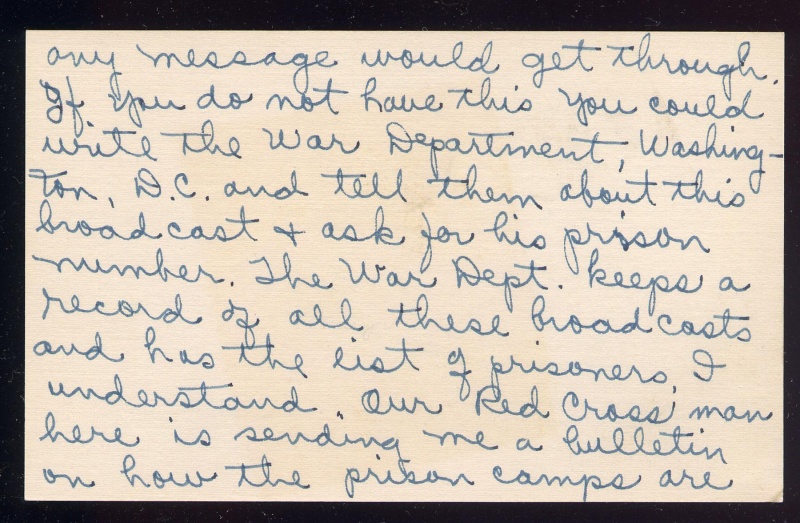 any message would get through.
If you do not have this you could
write the War Department, Washing-
ton, D.C. and tell them about this
broadcast & ask for his prison
number. The War Dept. keeps a
record of all these broadcasts
and has the list of prisoners, I
understand. Our Red Cross man
here is sending me a bulletin
on how the prison camps are